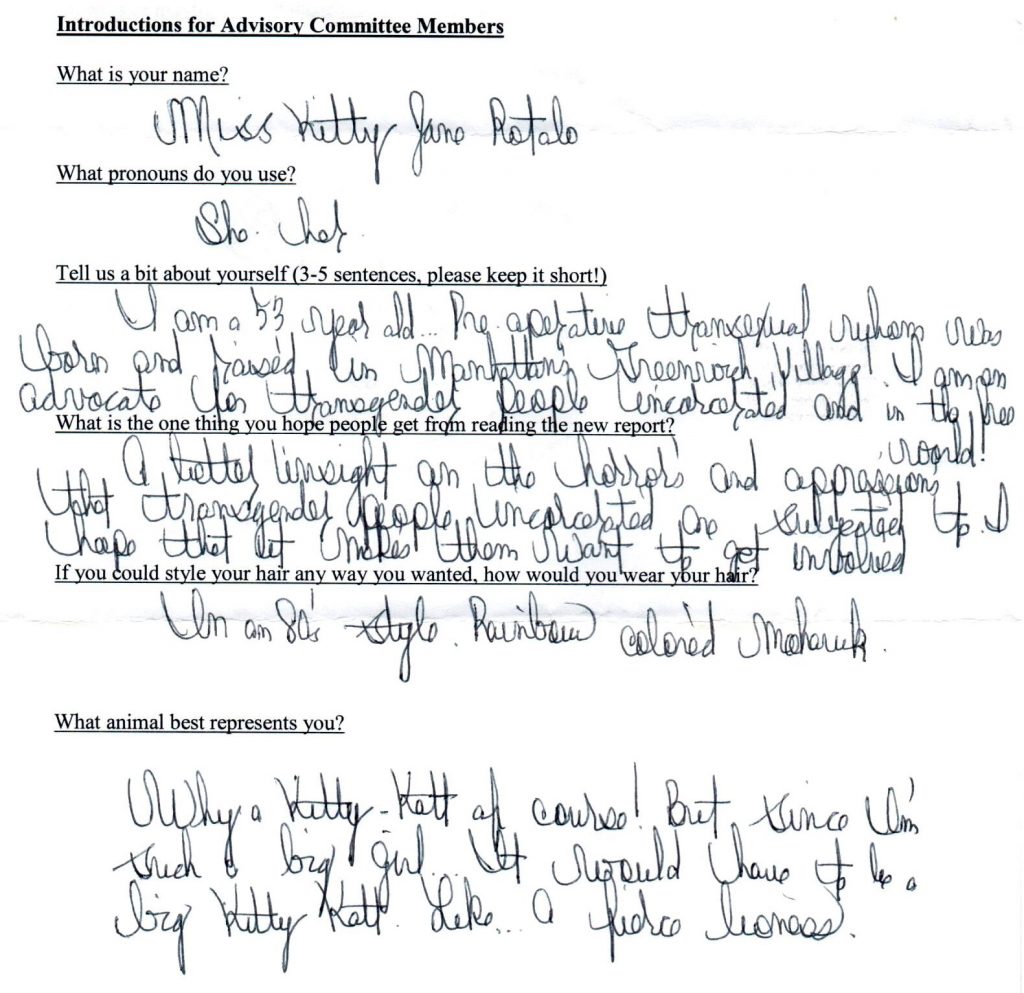 Introductions for Advisory Committee Members
What is your name?
Miss Kitty Jane Rotolo
What pronouns do you use?
She. her.
Tell us a bit about yourself (3-5 sentences, please keep it short!)
I am a 53 year old... Pre-operative transsexual whom was
born and raised in Manhattan's Greenwich Village! I am an
advocate for transgender people incarcerated and in the free
world!
What is the one thing you hope people get from reading the new report?
A better insight on the horrors and oppressions
that transgender people incarcerated are subjected to. I
hope that it makes them want to get involved
If you could style your hair any way you wanted, how would you wear your hair?
In an 80's style. Rainbow colored Mohawk.
What animal best represents you?
Why a Kitty-Katt of course! But, since I'm
such a big girl... It would have to be a
big Kitty Katt. Like... a fierce lioness.